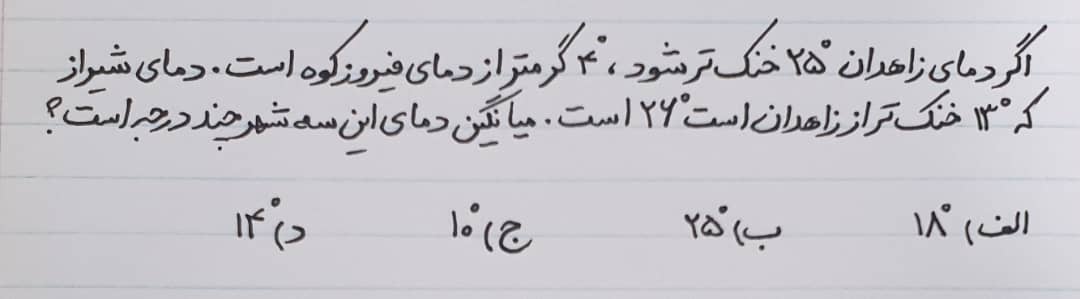 اگر دمای زاهدان ۲۵° خنک تر شود ، ۴° گرمتر از دمای فیروزکوه است . دمای شیراز
که ۱۳° خنک تر از زاهدان است ۲۶° است . میانگین دمای این سه شهر چند درجه است ؟
الف) ۱۸° ب) ۲۵° ج) ۱۰° د) ۱۴°